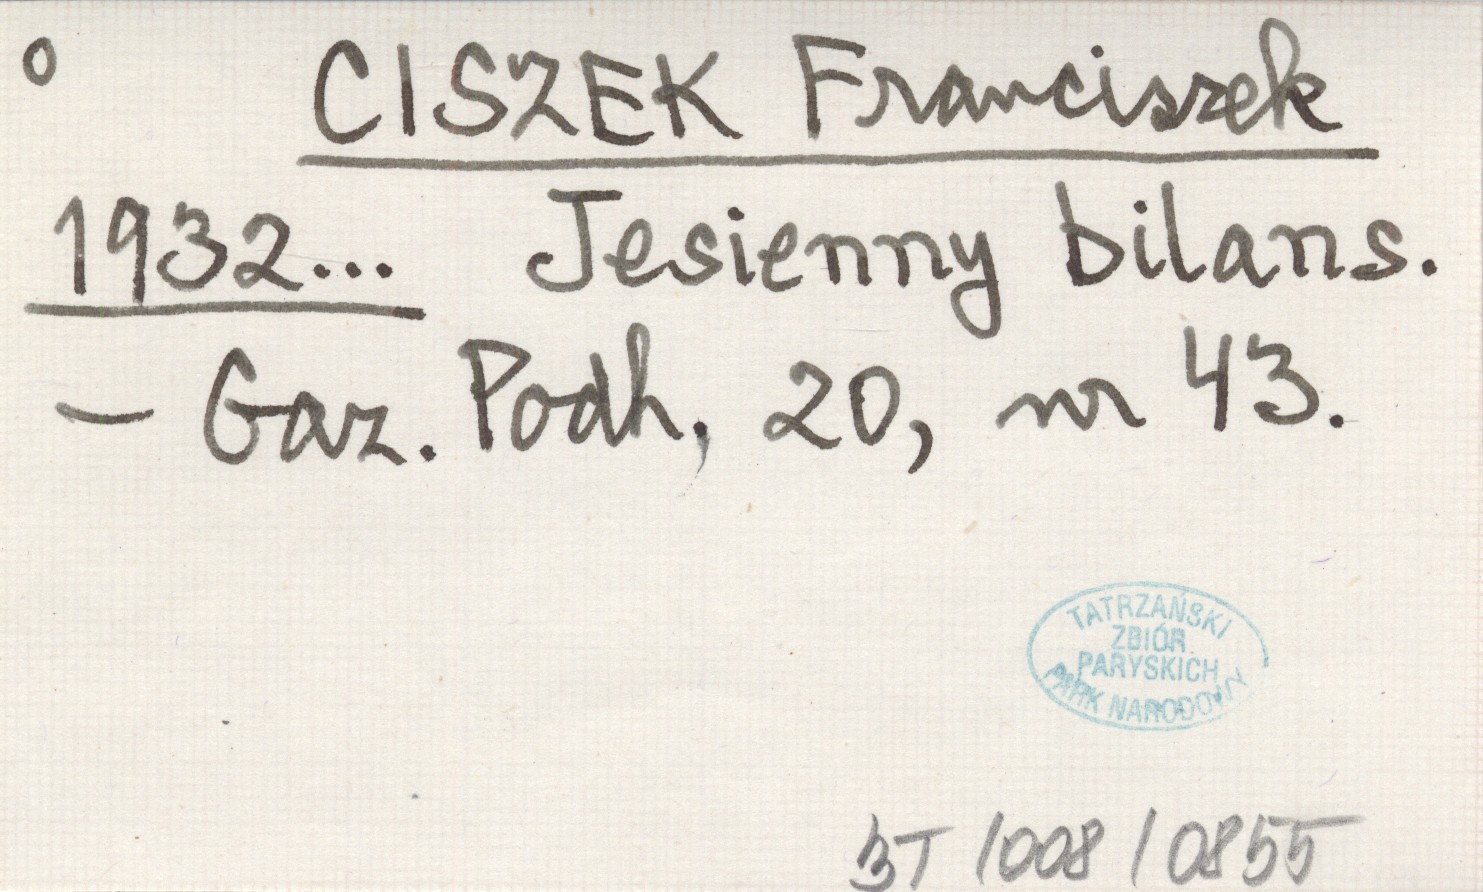 o CISZEK Franciszek
1932... Jesienny bilans.
– Gaz. Podh., 20, nr 43.
TATRZAŃSKI
ZBIÓR
PARYSKICH
PARK NARODOWY
BT /008 / 0855